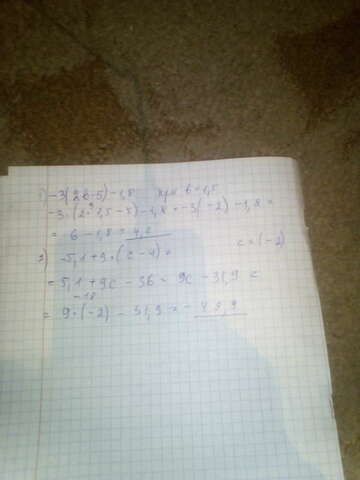 1) -3(2в-5)-1,8 при в-1,5
-3·(2·1,5-5)-1,8=-3(-2)-1,8=
= 6-1,8=4,2
2) -5,1+9·(c-4)= c=(-2)
= 5,1+9c-36=9c-31,9 =
-18
= 9·(-2)-31,9=-49,9